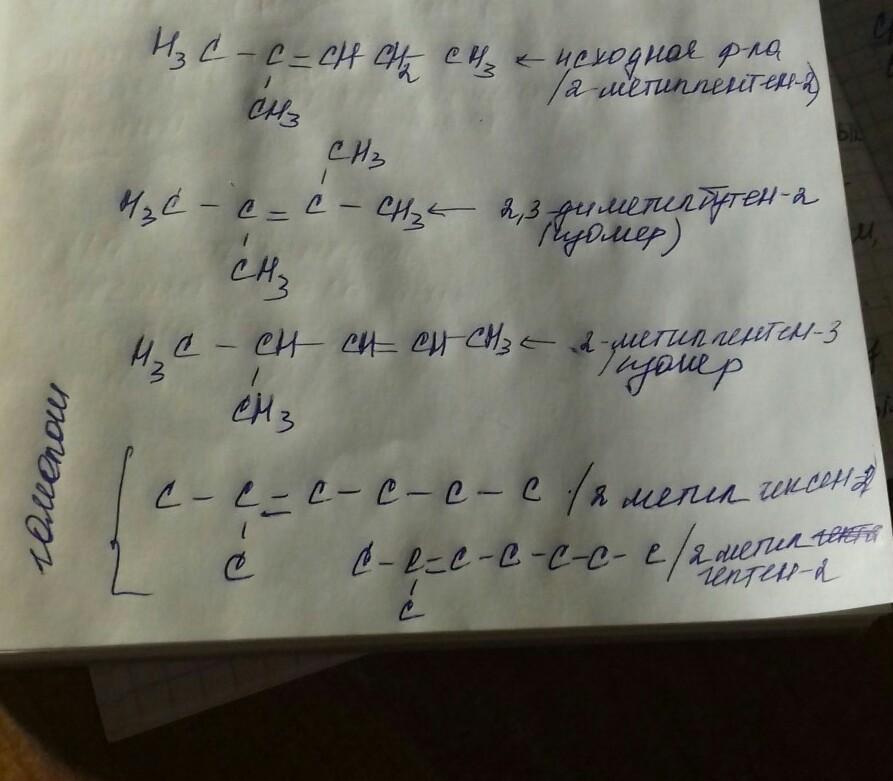 H3C - C = CH CH2 CH3 ← исходная ф-ла
CH3
/2-метилпентен-2)
CH3
H3C - C = C - CH3 ← 2,3-диметилбутен-2
CH3
(изомер)
H3C - CH - CH = CH - CH3 ← 2-метилпентен-3
CH3
/изомер
гомологи
C - C = C - C - C - C /2 метил гексен-2/
C
C - C = C - C - C - C - C /2 метил
гептен-2
C